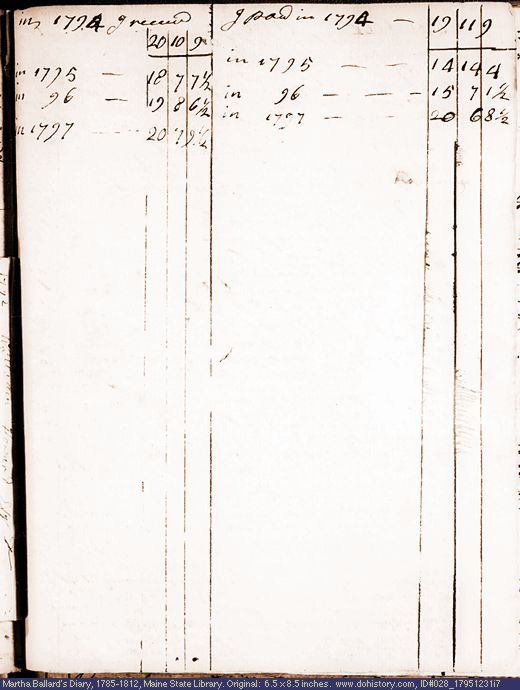 in 1794 I receivd 20 10 9
in 1795 — 18 7 7 ½
in 96 — 19 8 6 ½
in 1797 — 20 7 9 ½
I paid in 1794 — 19 11 9
in 1795 — 14 14 4
in 96 — — — 15 7 1 ½
in 1797 — — — 20 6 8 ½
Martha Ballard's Diary, 1785-1812, Maine State Library. Original: 6.5 x 8.5 inches. www.dohistory.com, ID#028_17951231i7